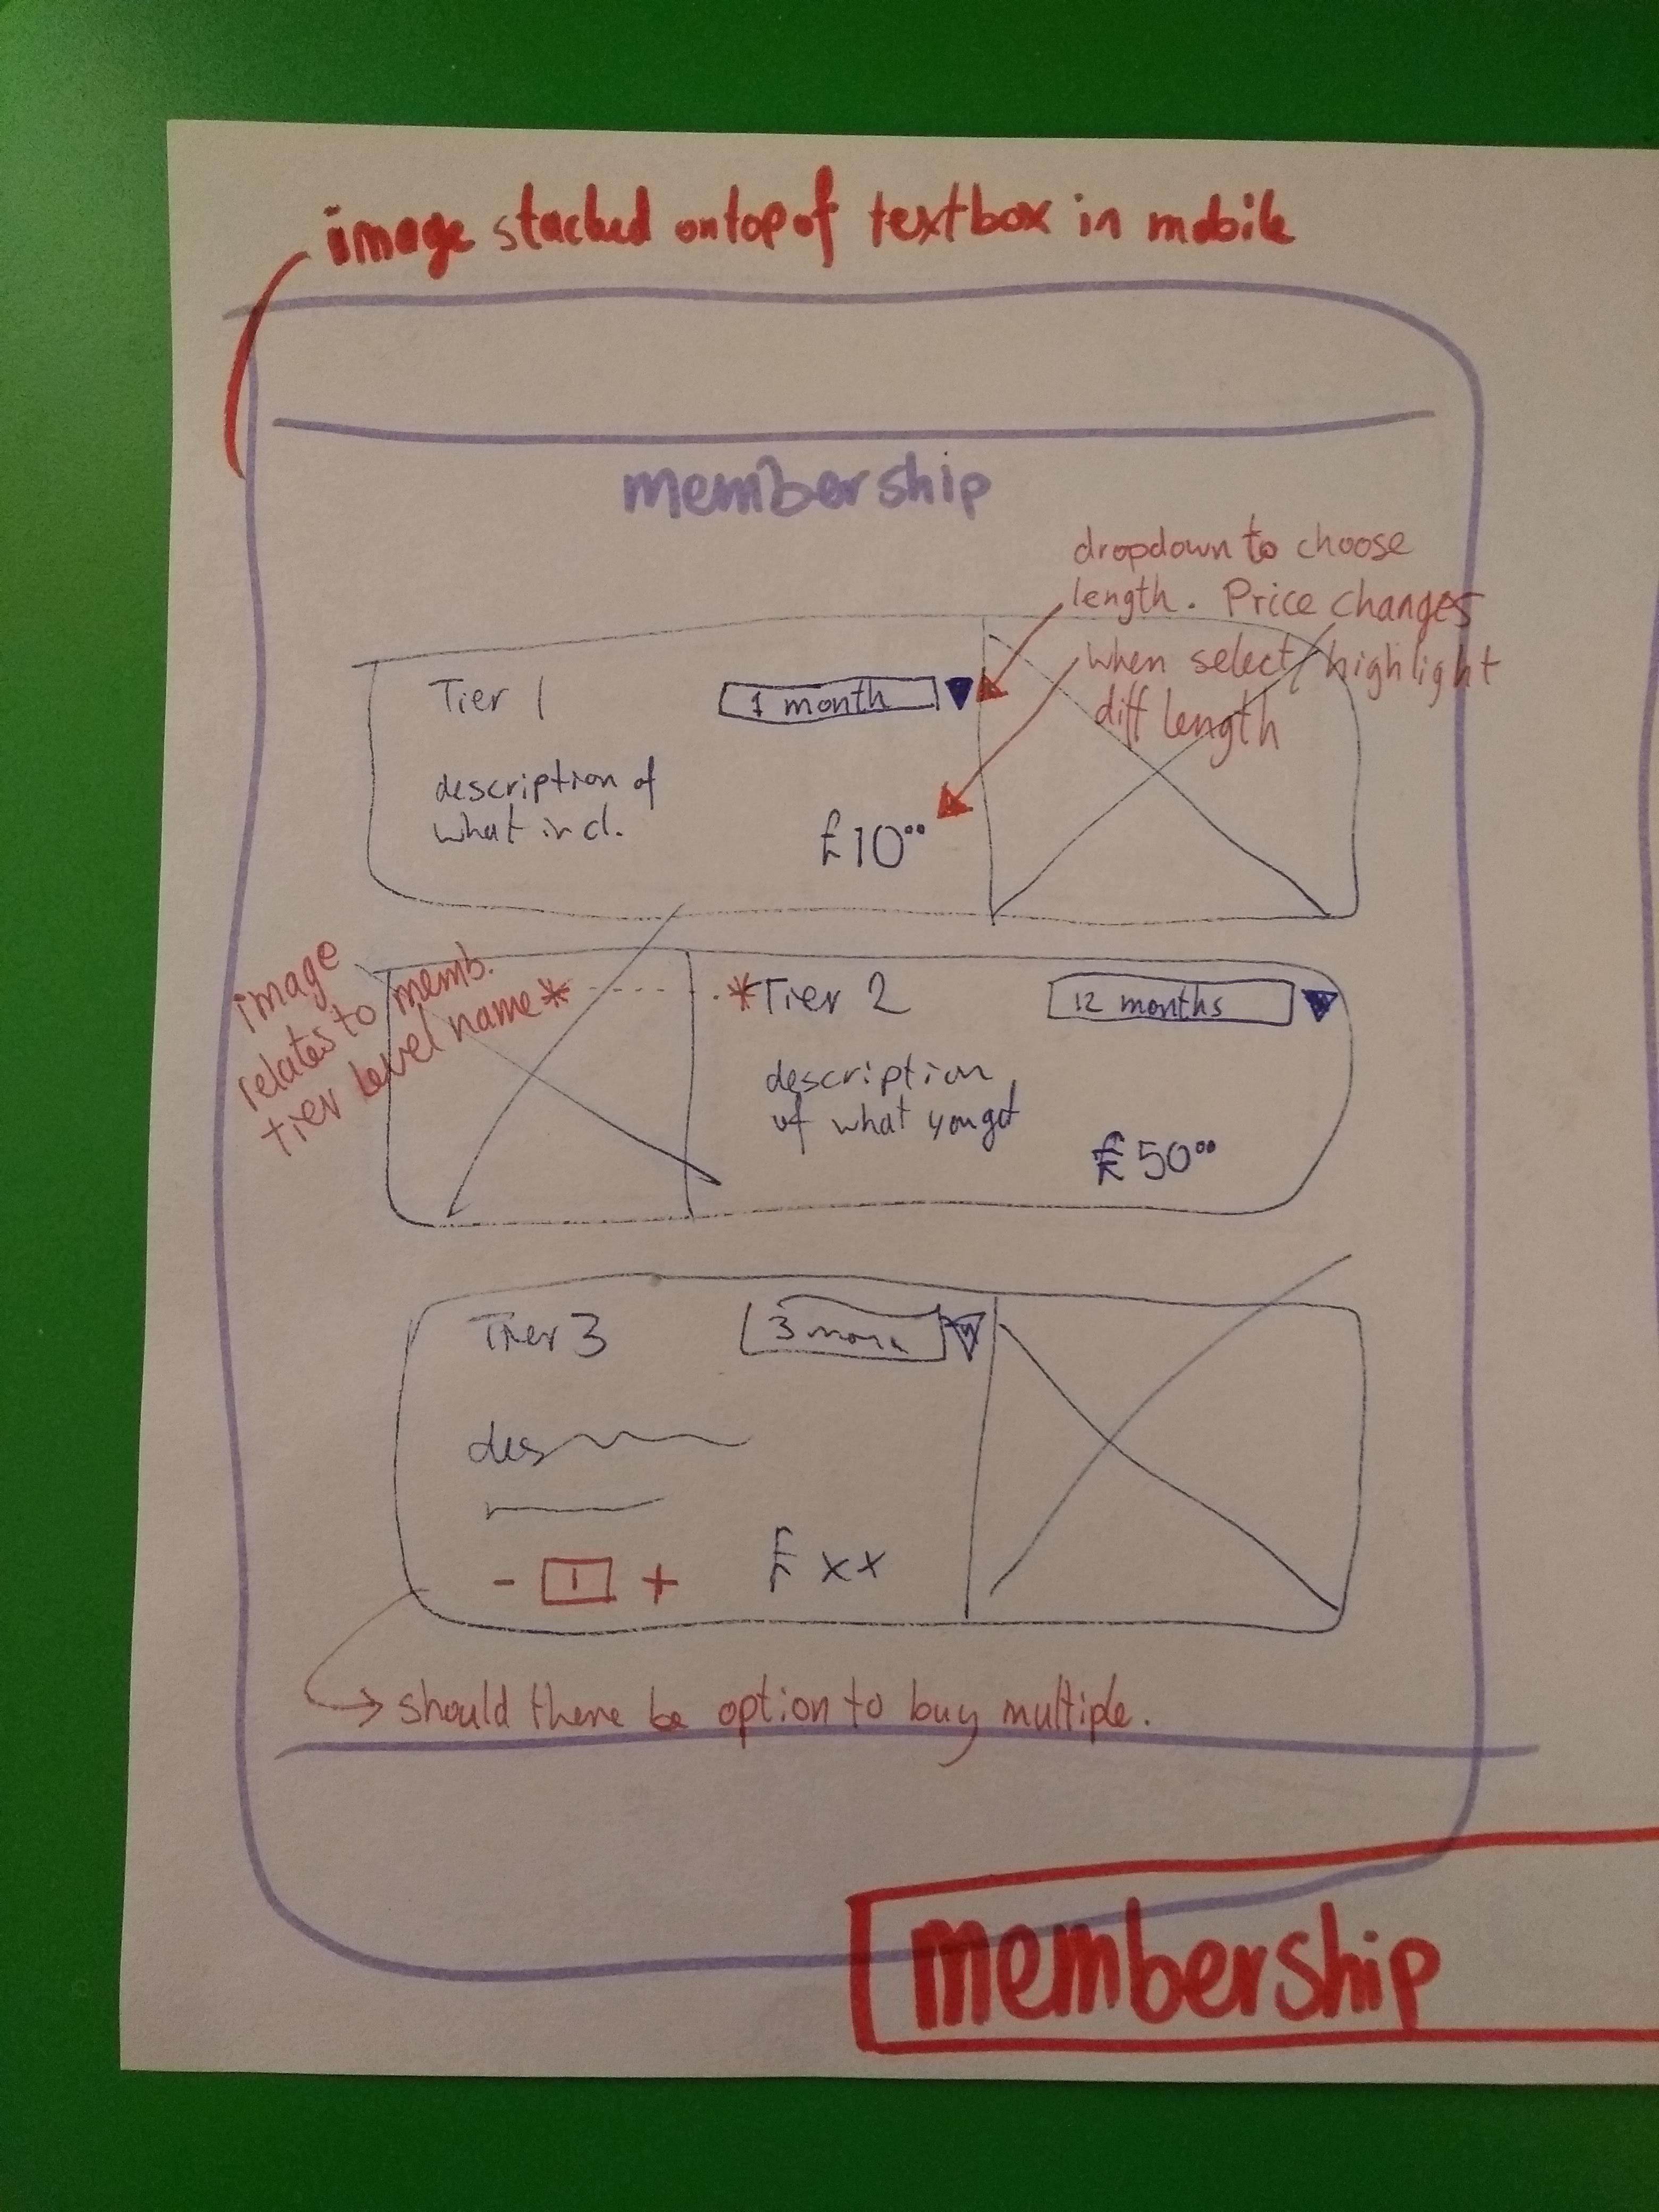 image stacked on top of textbox in mobile
membership
dropdown to choose
length. Price changes
when select/highlight
diff length
Tier 1
1 month
description of
what incl.
£10⁰⁰
image
relates to memb.
tier level name*
*Tier 2
12 months
description
of what you get
£50⁰⁰
Tier 3
3 mon
des
- 1 +
£ xx
should there be option to buy multiple.
membership